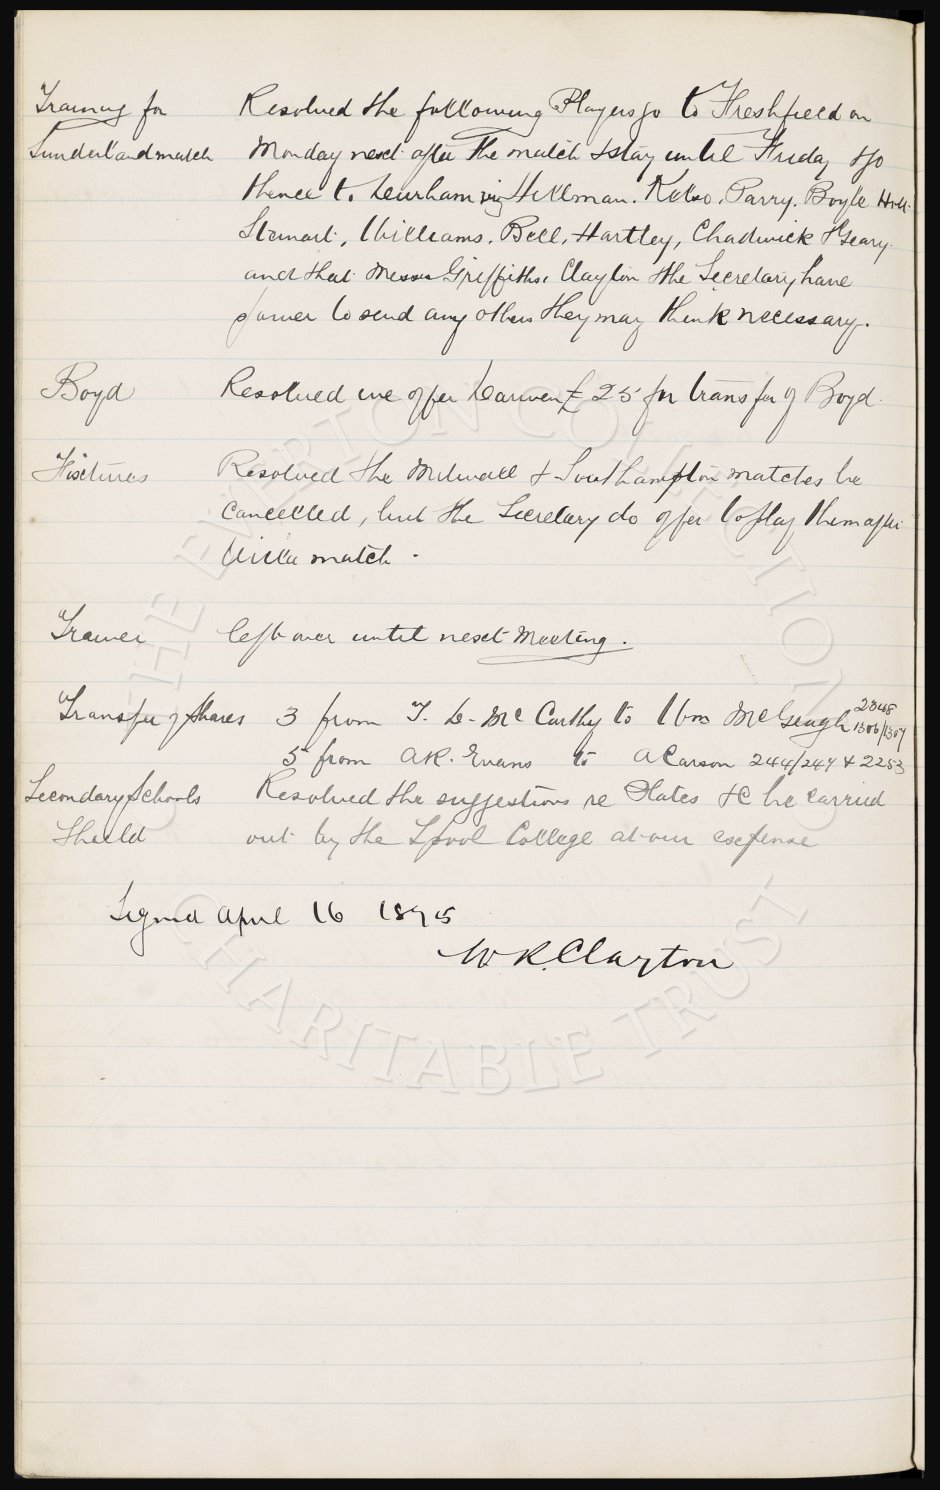 Training for Resolved the following Players go to Freshfield on
Sunderland match Monday next after the match & stay until Friday & go
thence to Durham viz Hillman. Kelso. Parry. Boyle Holt.
Stewart. Williams. Bell. Hartley, Chadwick & Geary.
and that Messrs Griffiths, Clayton & the Secretary have
power to send any others they may think necessary.
Boyd Resolved we offer Darwen £25 for transfer of Boyd.
Fixtures Resolved the Millwall & Southampton matches be
cancelled, but the Secretary do offer to play them after
Villa match.
Trainer left over until next Meeting.
Transfer of Shares 3 from T. D. McCarthy to Wm McGeagh 2348 1306/1307
5 from A R. Evans to A Carson 244/247 & 2253
Secondary Schools Resolved the suggestions re Dates &c be carried
Shield out by the Lpool College at our expense
Signed April 16 1895
W. R. Clayton
THE EVERTON COLLECTION
CHARITABLE TRUST